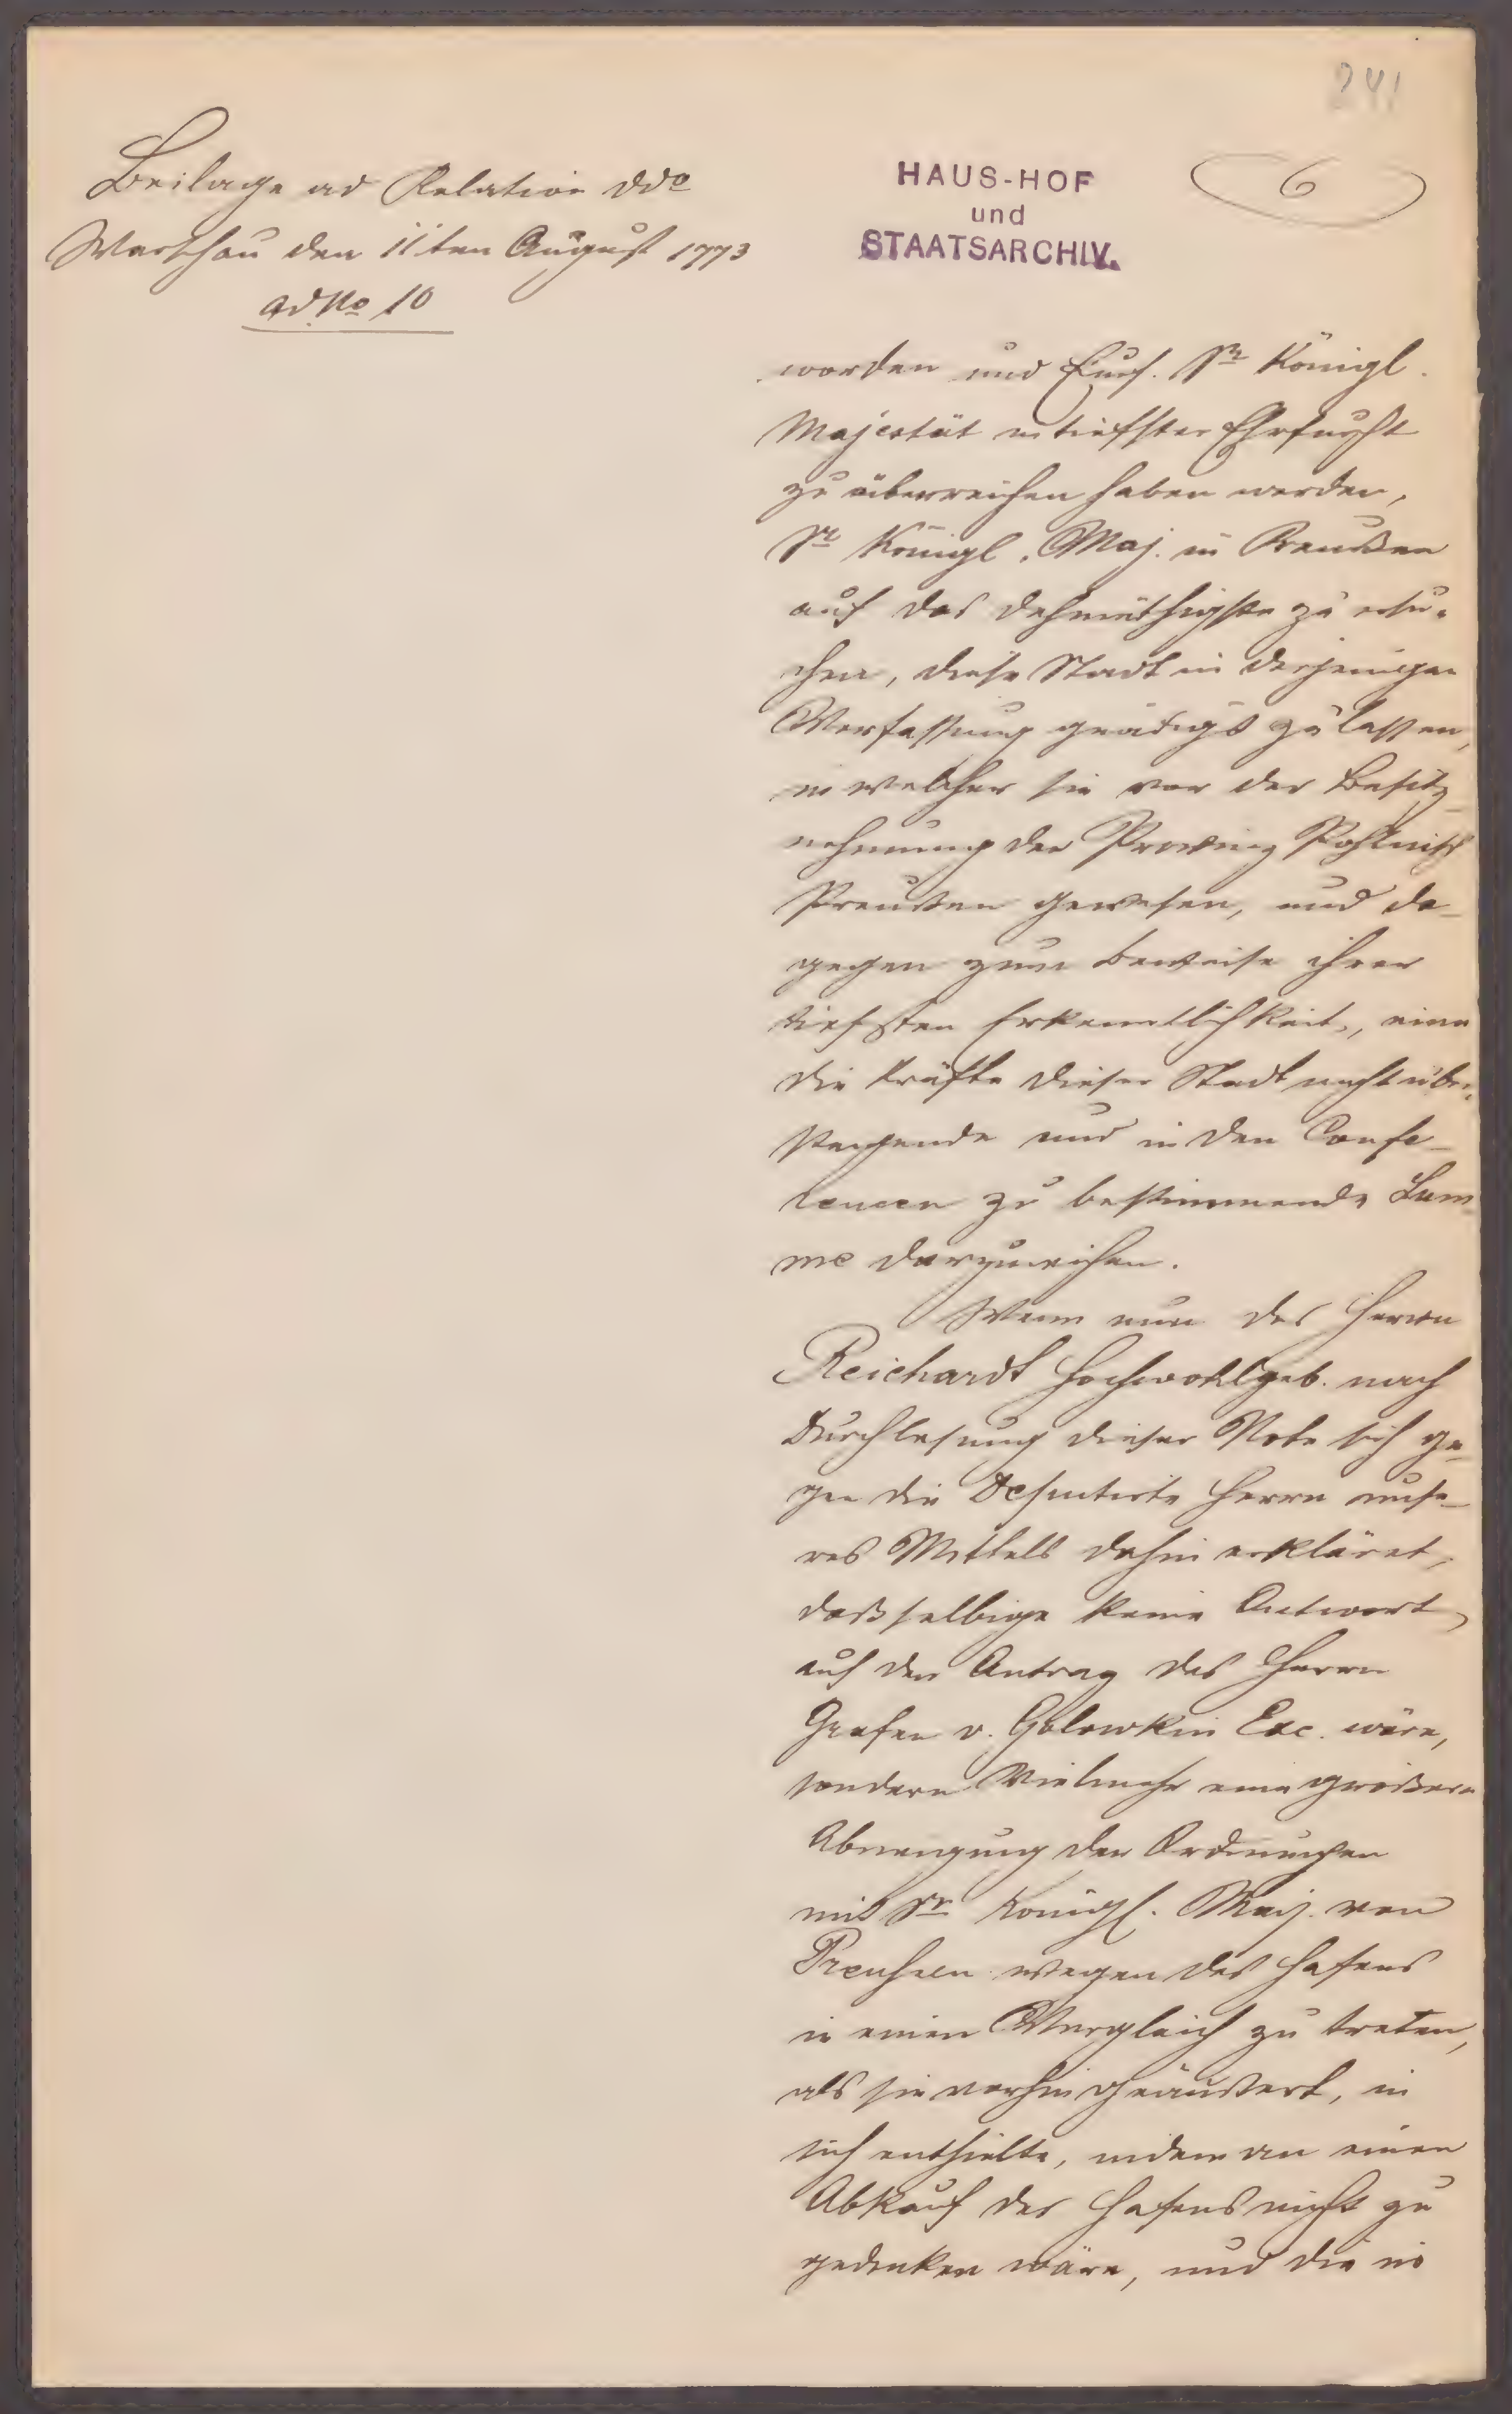 241
Beilage ad Relation ddo
Warschau den 11ten August 1773
ad No 10
HAUS-HOF
und
STAATSARCHIV.
6
worden und Sr Königl.
Majestät in tiefster Ehrfurcht
zu überreichen haben werden,
Sr Königl. Maj. in Preußen
auf das dehmüthigste zu ersu-
chen, diese Stadt in derjenigen
Verfassung gnädigst zu lassen,
in welcher sie vor der Besitz-
nehmung der Provinz Pohlnisch
Preußen gewesen, und da-
gegen zum Beweise ihrer
tiefsten Erkenntlichkeit, eine
die Kräfte dieser Stadt nicht über-
steigende und in den Confe-
rencen zu bestimmende Sum-
me darzureichen.
Wenn nun des Herrn
Reichardt Hochwohlgeb. nach
Durchlesung dieser Note sich ge-
gen die Deputirte Herrn unse-
res Mittels dahin erkläret,
daß selbige keine Antwort,
auf den Antrag des Herrn
Grafen v. Golowkin Exc. wäre,
sondern Vielmehr eine größere
Abneigung der Ordnungen
mit Sr Königl. Maj. von
Preußen wegen des Hafens
in einen Vergleich zu treten,
als sie vorhin geäußert, in
sich enthielte, indem an einen
Abkauf des Hafens nicht zu
gedenken wäre, und die in